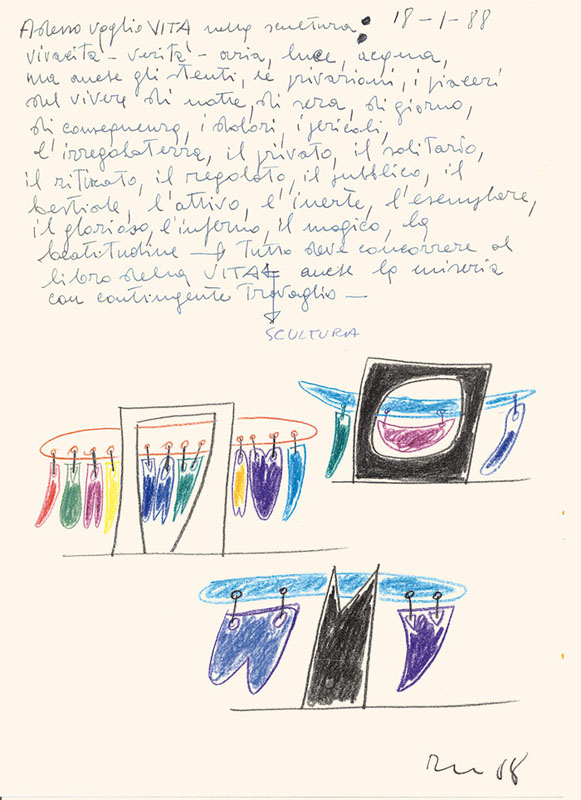 Adesso voglio VITA nella scultura: 18-1-88
vivacità - verità - aria, luce, acqua,
ma anche gli stenti, le privazioni, i piaceri
sul vivere di notte, di sera, di giorno,
di conseguenza, i dolori, i pericoli,
l'irregolatezza, il privato, il solitario,
il ritirato, il regolato, il pubblico, il
bestiale, l'attivo, l'inerte, l'esemplare,
il glorioso, l'inferno, il magico, la
beatitudine → Tutto deve concorrere al
libro della VITA anche la miseria
con contingente Travaglio —
SCULTURA
88